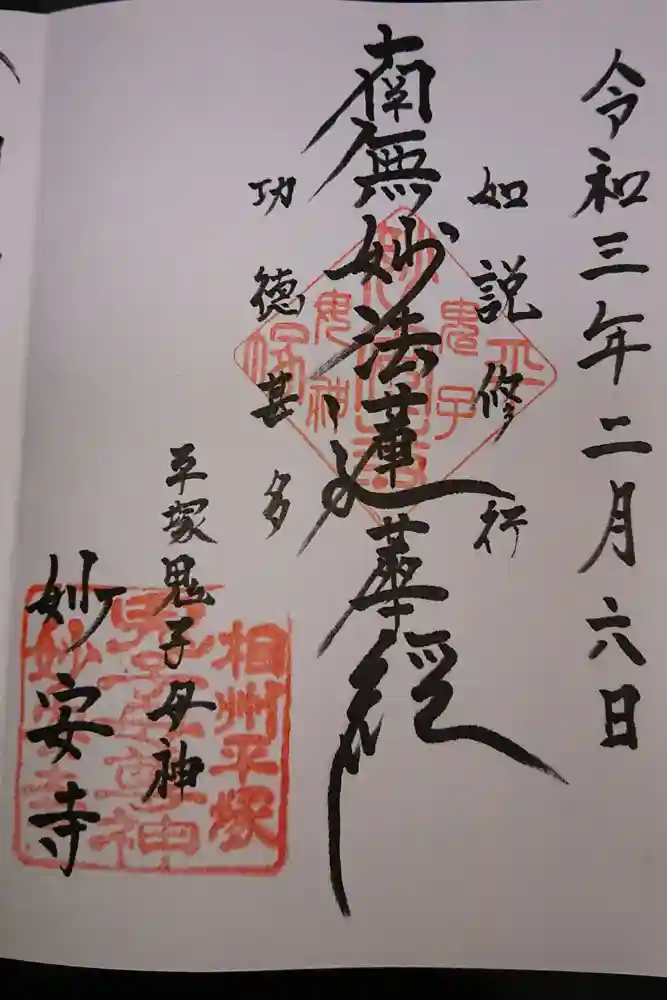 令和三年二月六日
如説修行
南無妙法蓮華経
功徳甚多
平塚鬼子母神
妙安寺
平塚
鬼子
母神
相州平塚
鬼子母尊神
妙安寺